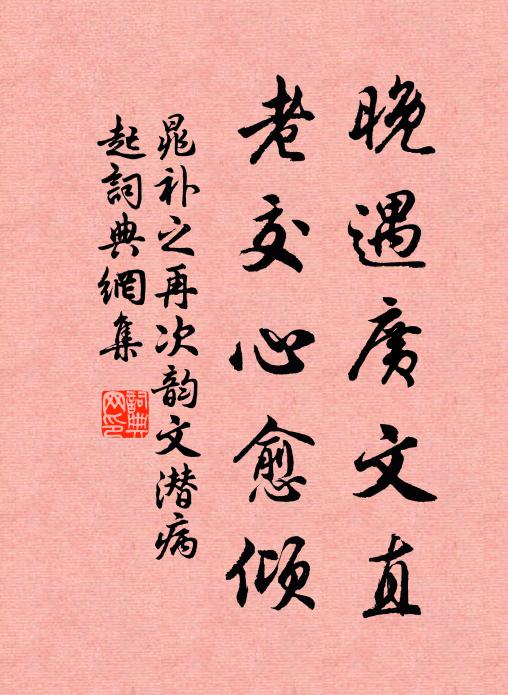 晚遇廣文直
老交心愈傾
晁补之再次韵文潜病
起詞典網集
詞典
网印